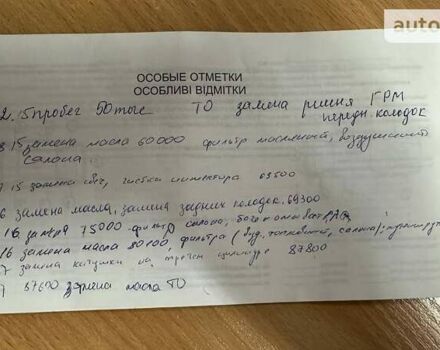 auto
ОСОБЫЕ ОТМЕТКИ
ОСОБЛИВІ ВІДМІТКИ
2.15 пробег 50 тыс ТО замена ремня ГРМ
передн. колодок
15 замена масла 60000 фильтр масленный, воздушный
салона.
15 замена свеч, чистка инжектора 63500
6 замена масла, замена задних колодок. 69300
16 замена 75000 фильтр салона,
16 замена масла 80100, фильтра ( салона),
7 замена катушки на третем цилиндре 87800
7 87600 замена масла ТО